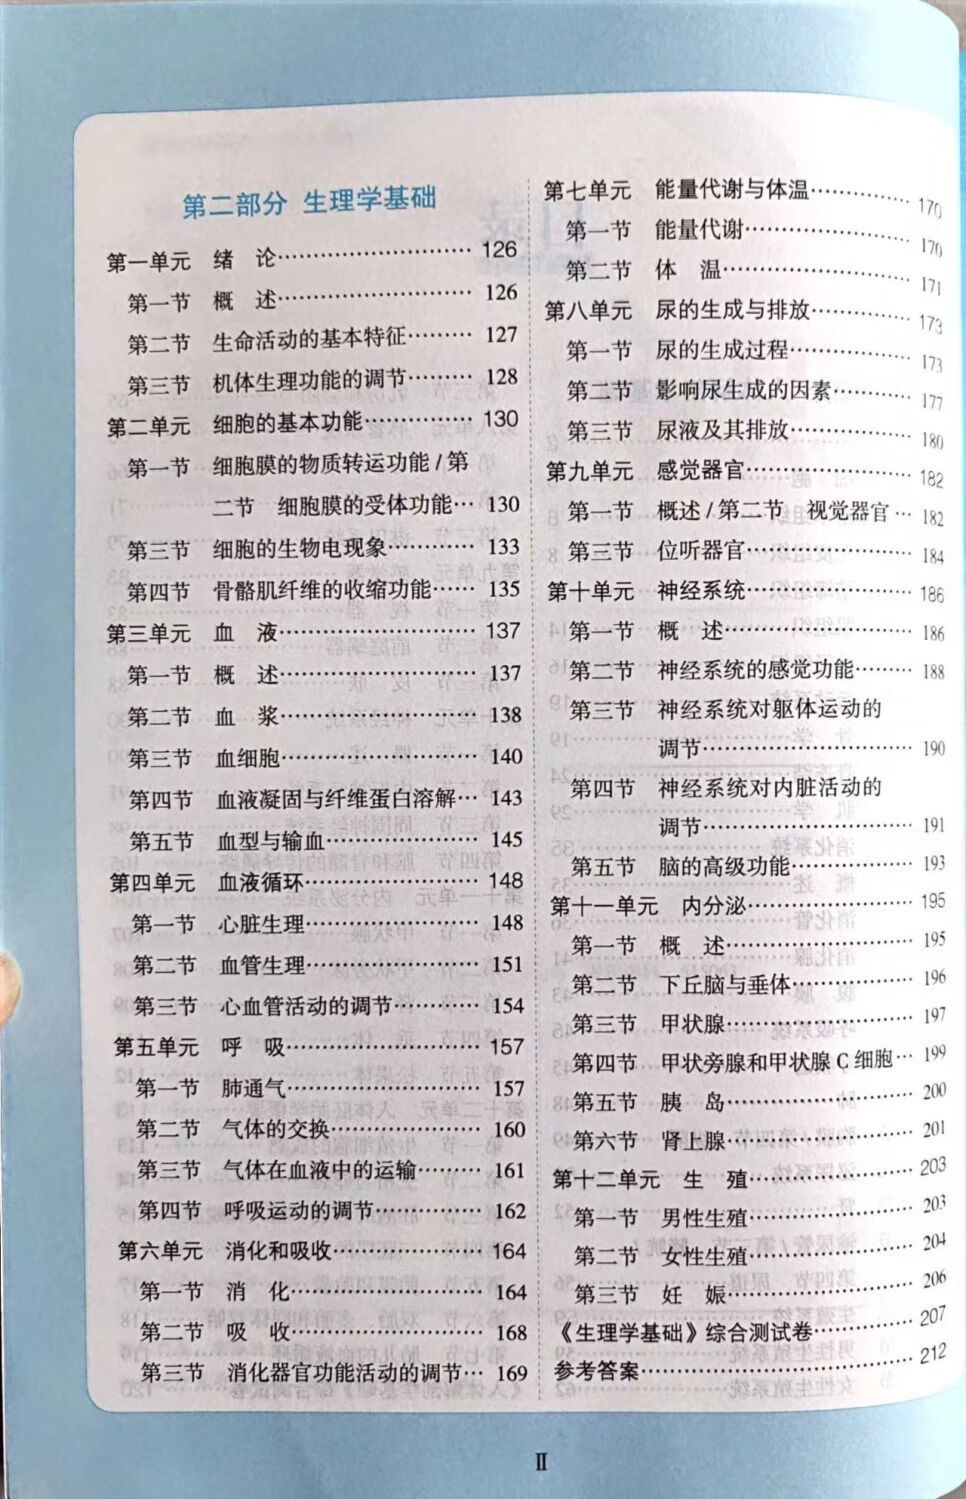 第二部分 生理学基础
第一单元 绪 论 126
第一节 概 述 126
第二节 生命活动的基本特征 127
第三节 机体生理功能的调节 128
第二单元 细胞的基本功能 130
第一节 细胞膜的物质转运功能/第
二节 细胞膜的受体功能 130
第三节 细胞的生物电现象 133
第四节 骨骼肌纤维的收缩功能 135
第三单元 血 液 137
第一节 概 述 137
第二节 血 浆 138
第三节 血细胞 140
第四节 血液凝固与纤维蛋白溶解 143
第五节 血型与输血 145
第四单元 血液循环 148
第一节 心脏生理 148
第二节 血管生理 151
第三节 心血管活动的调节 154
第五单元 呼 吸 157
第一节 肺通气 157
第二节 气体的交换 160
第三节 气体在血液中的运输 161
第四节 呼吸运动的调节 162
第六单元 消化和吸收 164
第一节 消 化 164
第二节 吸 收 168
第三节 消化器官功能活动的调节 169
第七单元 能量代谢与体温 170
第一节 能量代谢 170
第二节 体 温 171
第八单元 尿的生成与排放 173
第一节 尿的生成过程 173
第二节 影响尿生成的因素 177
第三节 尿液及其排放 180
第九单元 感觉器官 182
第一节 概述/第二节 视觉器官 182
第三节 位听器官 184
第十单元 神经系统 186
第一节 概 述 186
第二节 神经系统的感觉功能 188
第三节 神经系统对躯体运动的
调节 190
第四节 神经系统对内脏活动的
调节 191
第五节 脑的高级功能 193
第十一单元 内分泌 195
第一节 概 述 195
第二节 下丘脑与垂体 196
第三节 甲状腺 197
第四节 甲状旁腺和甲状腺C细胞 199
第五节 胰 岛 200
第六节 肾上腺 201
第十二单元 生 殖 203
第一节 男性生殖 203
第二节 女性生殖 204
第三节 妊 娠 206
《生理学基础》综合测试卷 207
参考答案 212
II